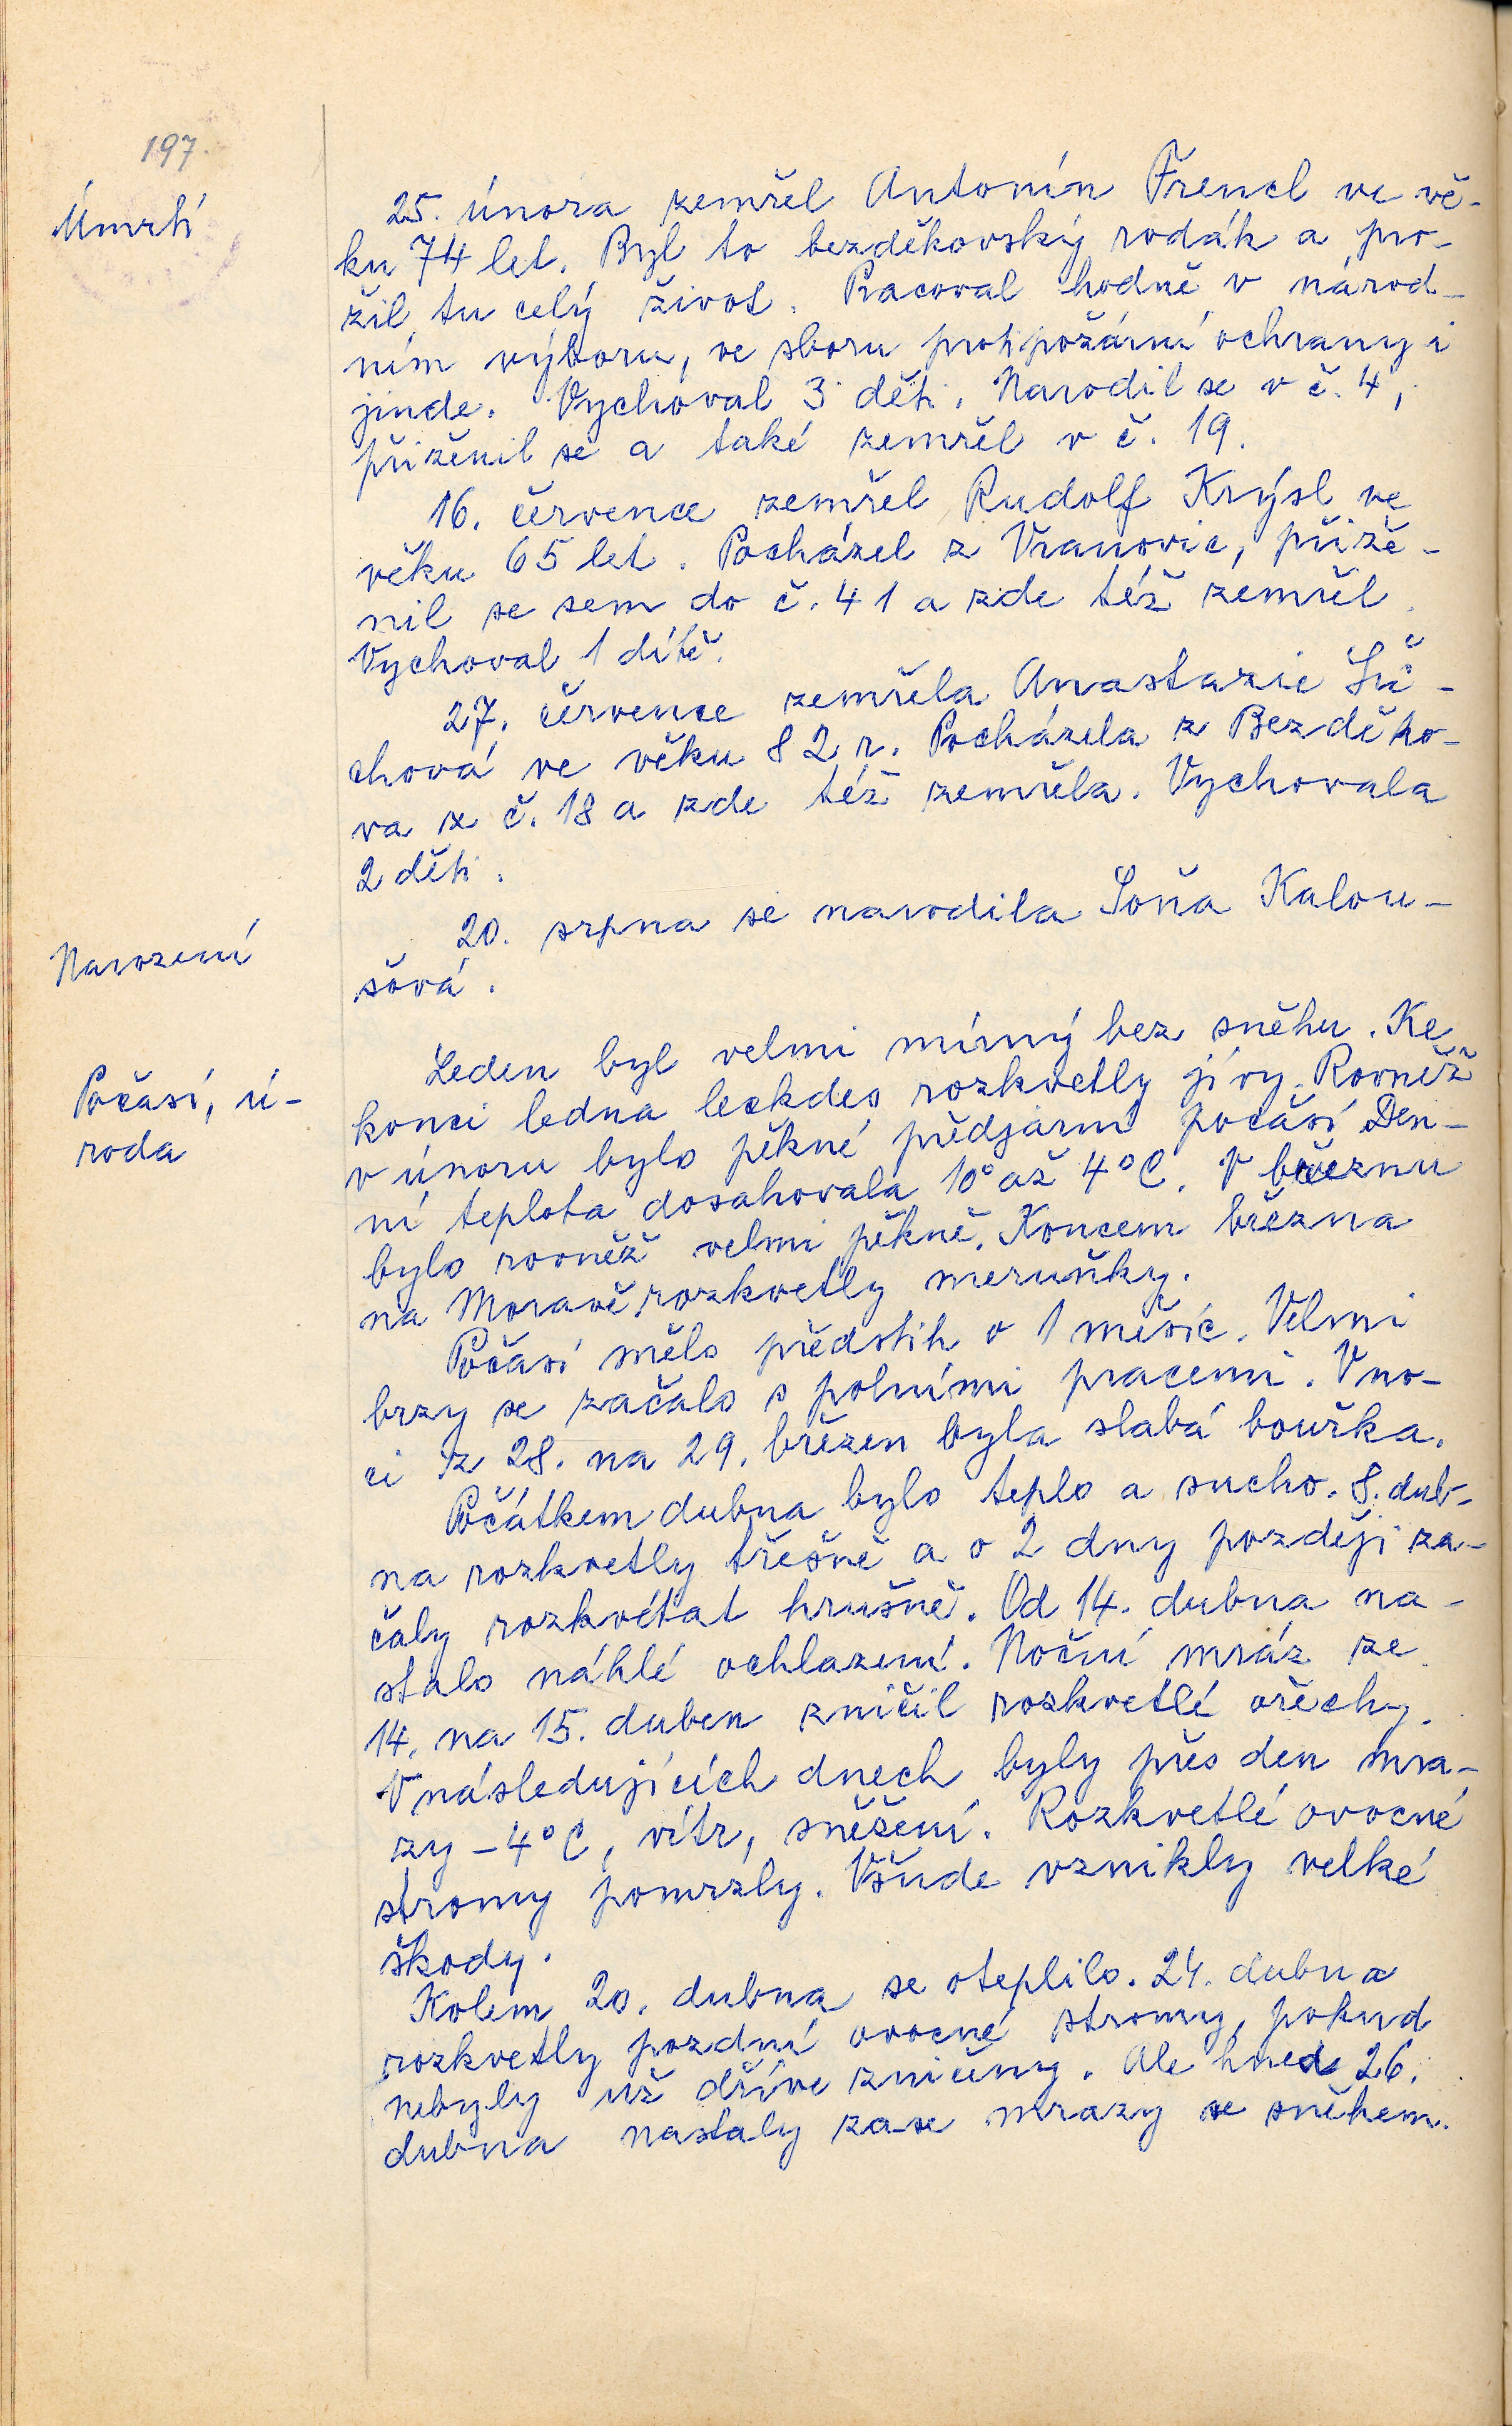 197.
Úmrtí
25. února zemřel Antonín Frencl ve vě-
ku 74 let. Byl to bezděkovský rodák a pro-
žil tu celý život. Pracoval hodně v národ-
ním výboru, ve sboru protipožární ochrany i
jinde. Vychoval 3 děti. Narodil se v č. 4,
přiženil se a také zemřel v č. 19.
16. července zemřel Rudolf Krýsl ve
věku 65 let. Pocházel z Vranovic, přiže-
nil se sem do č. 41 a zde též zemřel.
Vychoval 1 dítě.
27. července zemřela Anastazie
chová ve věku 82 r. Pocházela z Bezděko-
va z č. 18 a zde též zemřela. Vychovala
2 děti.
Narození
20. srpna se narodila Soňa Kalou-
sová.
Počasí, ú-
roda
Leden byl velmi mírný bez sněhu. Ke
konci ledna leckdes rozkvetly jívy. Rovněž
v únoru bylo pěkné předjarní počasí Den-
ní teplota dosahovala 10° až 4°C. V březnu
bylo rovněž velmi pěkně. Koncem března
na Moravě rozkvetly meruňky.
Počasí mělo předstih o 1 měsíc. Velmi
brzy se začalo s polními pracemi. V no-
ci z 28. na 29. březen byla slabá bouřka.
Počátkem dubna bylo teplo a sucho. 8. dub-
na rozkvetly třešně a o 2 dny později za-
čaly rozkvétat hrušně. Od 14. dubna na-
stalo náhlé ochlazení. Noční mráz ze
14. na 15. duben zničil rozkvetlé ořechy.
V následujících dnech byly přes den mra-
zy -4°C, vítr, sněžení. Rozkvetlé ovocné
stromy pomrzly. Všude vznikly velké
škody.
Kolem 20. dubna se oteplilo. 24. dubna
rozkvetly pozdní ovocné stromy, pokud
nebyly už dříve zničeny. Ale hned 26.
dubna nastaly zase mrazy se sněhem.